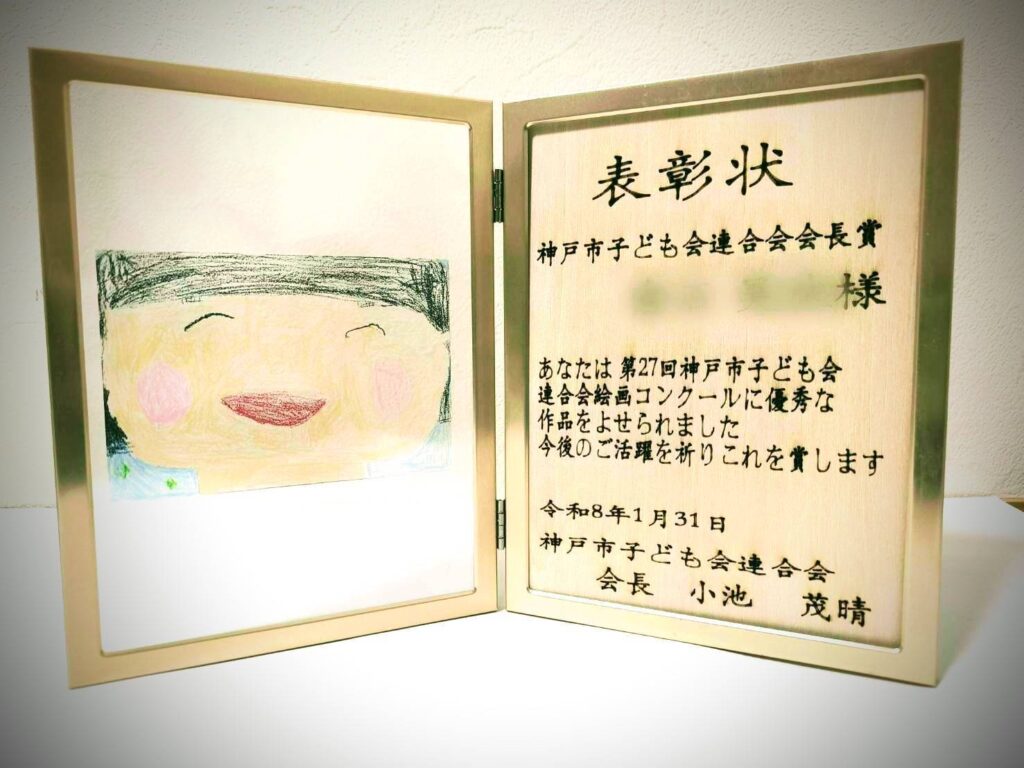 表彰状
神戸市子ども会連合会会長賞
様
あなたは 第27回神戸市子ども会
連合会絵画コンクールに優秀な
作品をよせられました
今後のご活躍を祈りこれを賞します
令和8年1月31日
神戸市子ども会連合会
会長 小池 茂晴